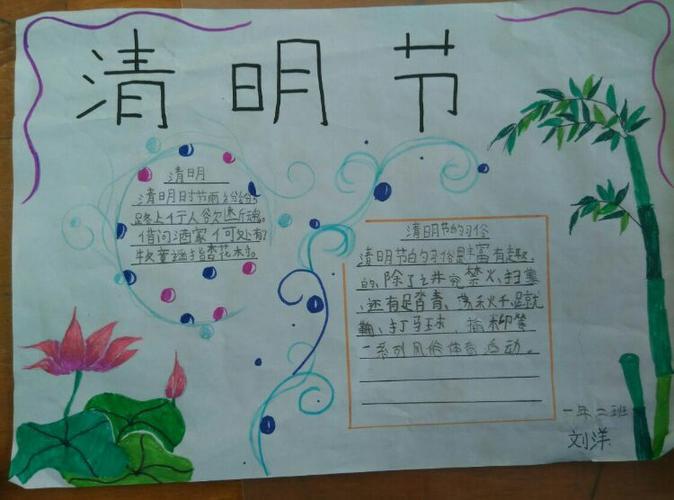 清明节
清明
清明时节雨纷纷
路上行人欲断魂。
借问酒家何处有
牧童遥指杏花村。
清明节的习俗
清明节的习俗是丰富有趣
的,除了讲究禁火、扫墓
,还有踏青、荡秋千、蹴就
鞠、打马球、插柳等
一系列风俗体育活动。
一年二班
刘洋